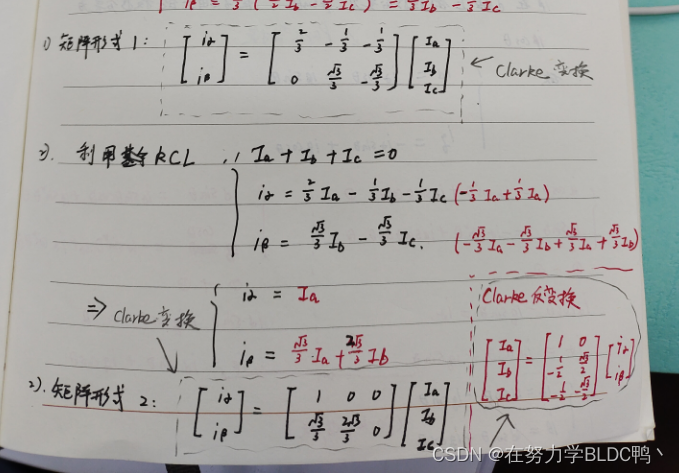 iβ = 2/3 (√3/2 Ib - √3/2 Ic) = √3/3 Ib - √3/3 Ic
1) 矩阵形式 1: [iα iβ] = [2/3 -1/3 -1/3; 0 √3/3 -√3/3] [Ia Ib Ic] ← Clarke 变换
2). 利用基尔 KCL, ∵ Ia + Ib + Ic = 0
iα = 2/3 Ia - 1/3 Ib - 1/3 Ic (-1/3 Ia + 1/3 Ia)
iβ = √3/3 Ib - √3/3 Ic. (-√3/3 Ia - √3/3 Ib + √3/3 Ia + √3/3 Ib)
iα = Ia
⇒ Clarke 变换
iβ = √3/3 Ia + 2√3/3 Ib
Clarke 反变换
[Ia Ib Ic] = [1 0; -1/2 √3/2; -1/2 -√3/2] [iα iβ]
2). 矩阵形式 2: [iα iβ] = [1 0 0; √3/3 2√3/3 0] [Ia Ib Ic]
CSDN @在努力学BLDC鸭丶